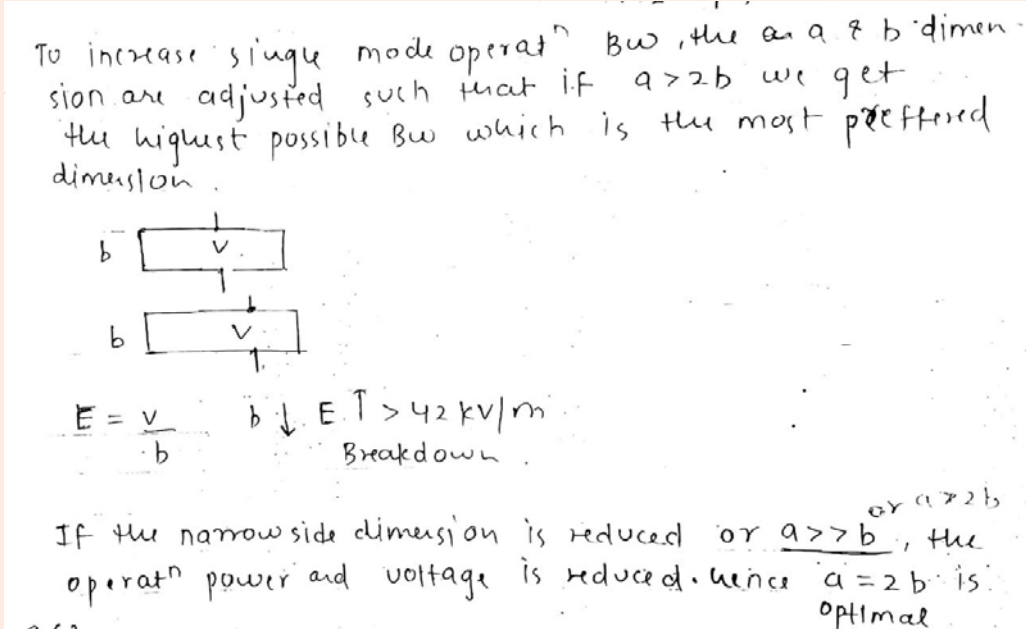 To increase single mode operatⁿ BW, the a & b dimen-
sion are adjusted such that if a > 2b we get
the highest possible BW which is the most preffered
dimension.
b V
b V
E = V/b b ↓ E ↑ > 42 kV/m
Breakdown.
or a > 2b
If the narrow side dimension is reduced or a >> b, the
operatⁿ power and voltage is reduced. hence a = 2b is
optimal